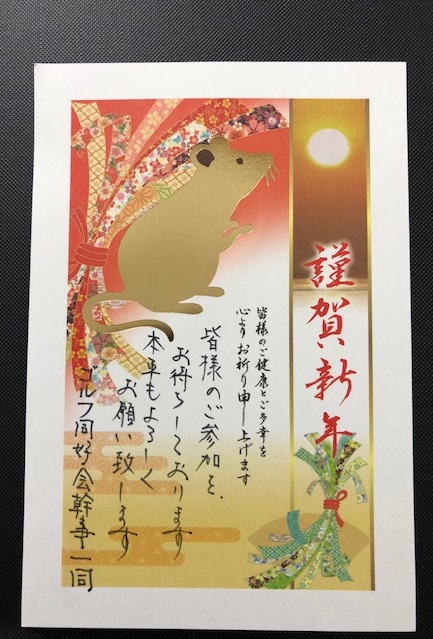 謹賀新年
皆様のご健康とご多幸を
心よりお祈り申し上げます
皆様のご参加を、
お待ちしております
本年もよろしく
お願い致します
ゴルフ同好会幹事一同